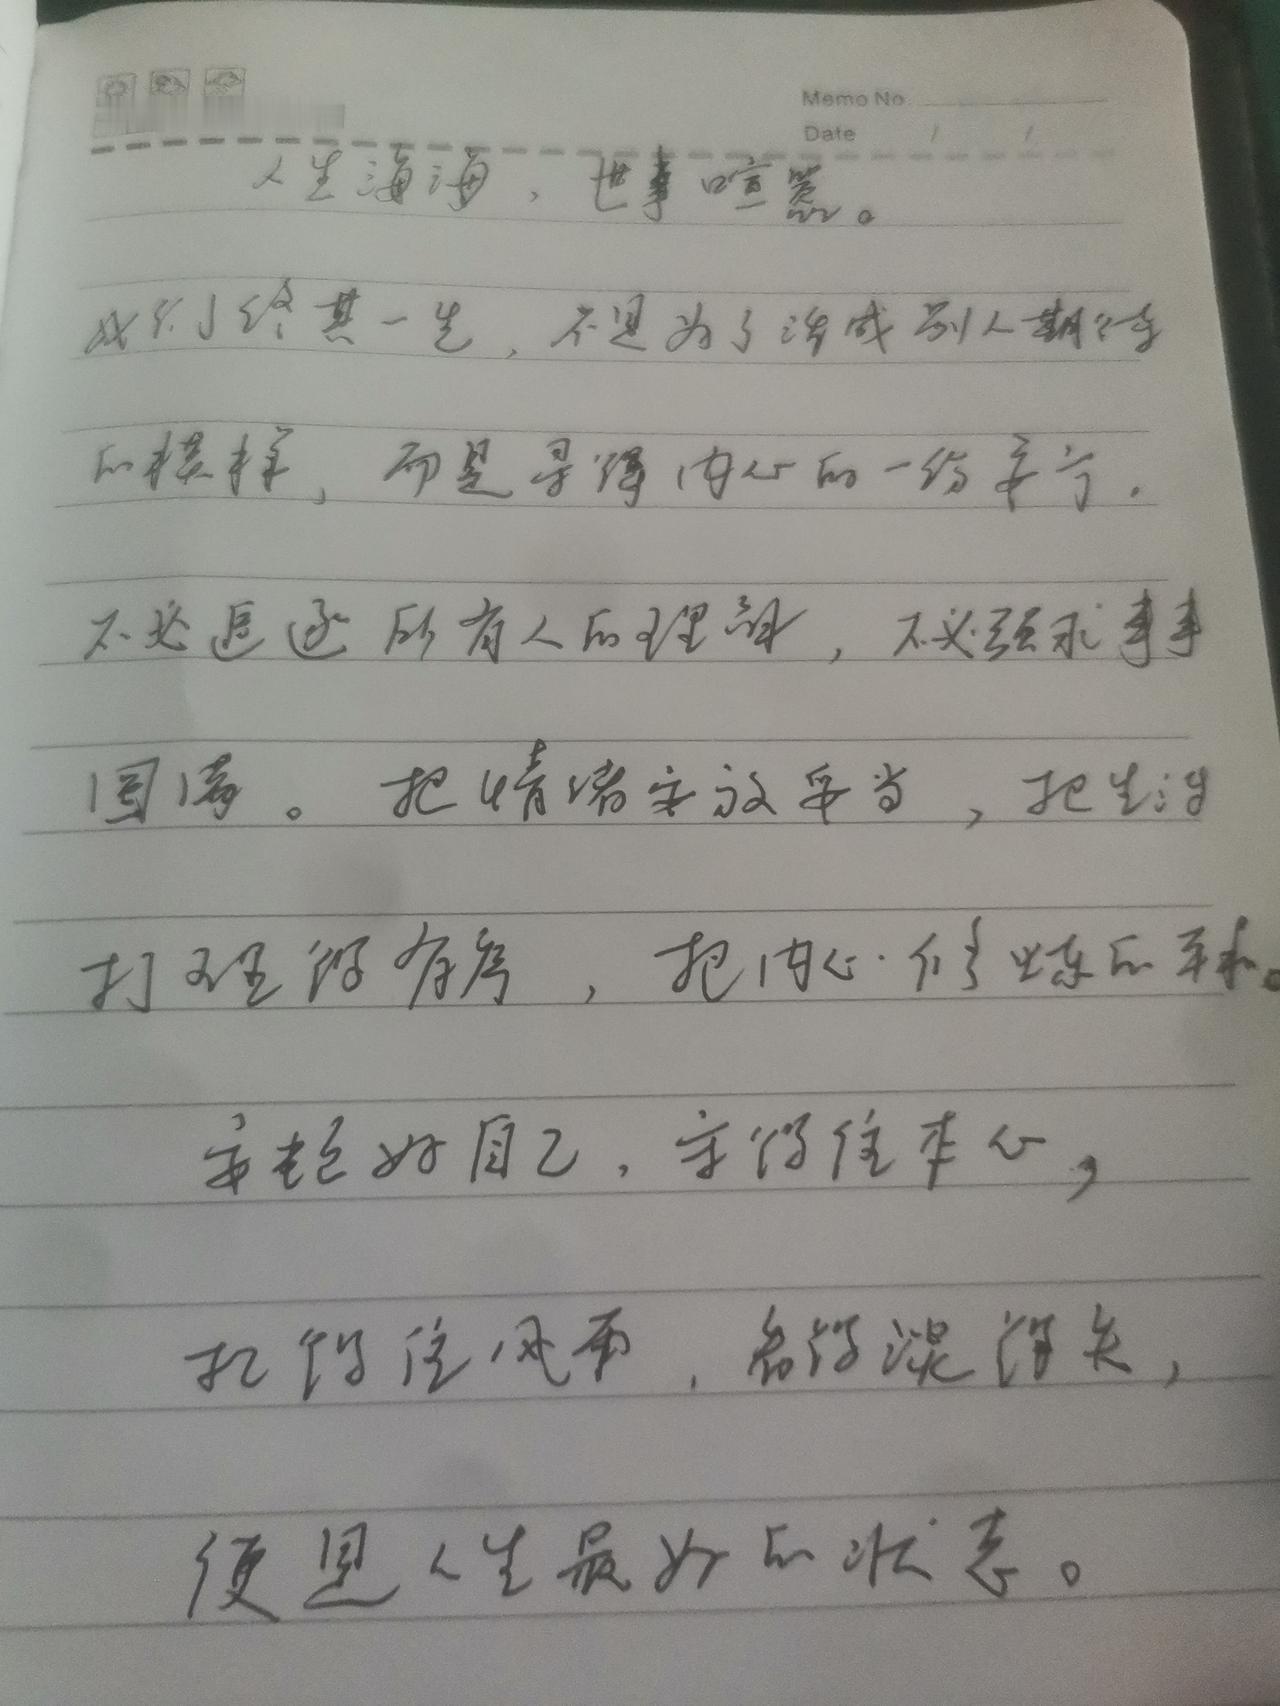 Memo No
Date / /
人生海海，世事喧嚣。
我们终其一生，不是为了活成别人期待
的模样，而是寻得内心的一份安宁.
不必追逐所有人的理解，不必强求事事
圆满。把情绪安放妥当，把生活
打理得有序，把内心修炼的平和。
安顿好自己，守得住本心，
扛得住风雨，看得淡得失，
便是人生最好的状态。